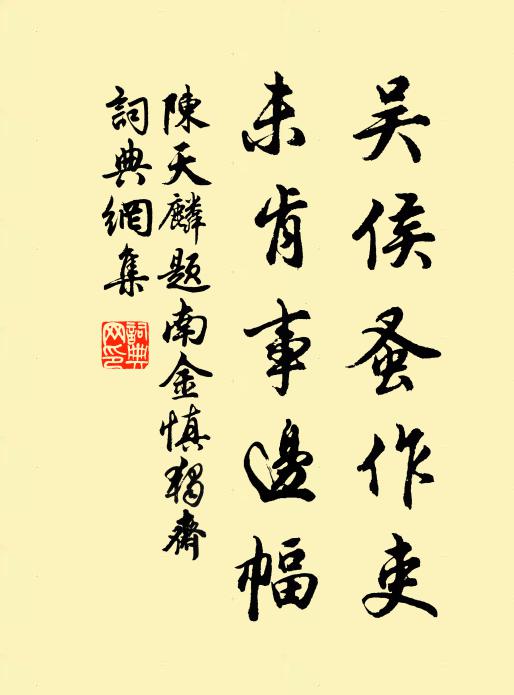 吴侯蚤作吏
未肯事邊幅
陳天麟題南金慎獨齋
詞典網集
詞典网印